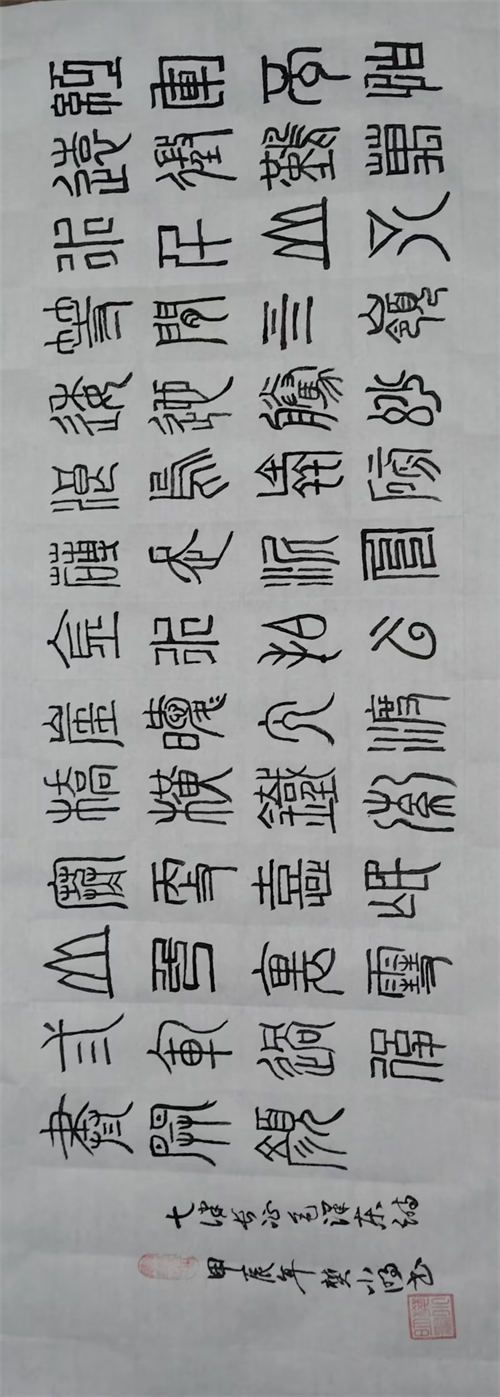 紅軍不怕
遠征難萬
水千山只
等閒五嶺
逶迤騰細
浪烏蒙磅
礴走泥丸
金水拍雲
崖暖大渡
橋橫鐵索
寒更喜岷
山千里雪
弎軍過後
盡開顏
七律长征毛泽东诗
甲辰年樊小书